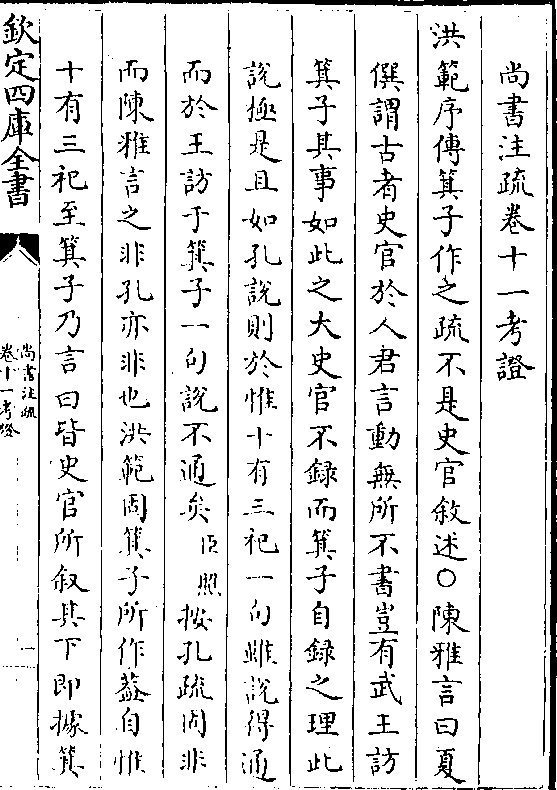 尚書注疏卷十一考證
洪範序傳箕子作之疏不是史官敘述○陳雅言曰夏
僎謂古者史官於人君言動無所不書豈有武王訪
箕子其事如此之大史官不録而箕子自録之理此
說極是且如孔說則於惟十有三祀一句雖說得通
而於王訪于箕子一句說不通矣臣照按孔疏固非
而陳雅言之非孔亦非也洪範固箕子所作葢自惟
十有三祀至箕子乃言曰皆史官所叙其下即據箕
欽定四庫全書
尚書注疏
卷十一考證
一